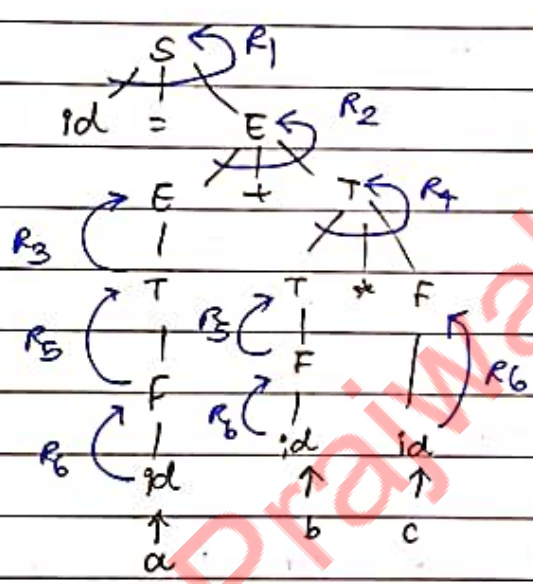 S R1
id = E R2
E + T R4
R3
T T * F
R5 R5 F R6
F
R6 R6 id id
id
b c
a
Prajwa